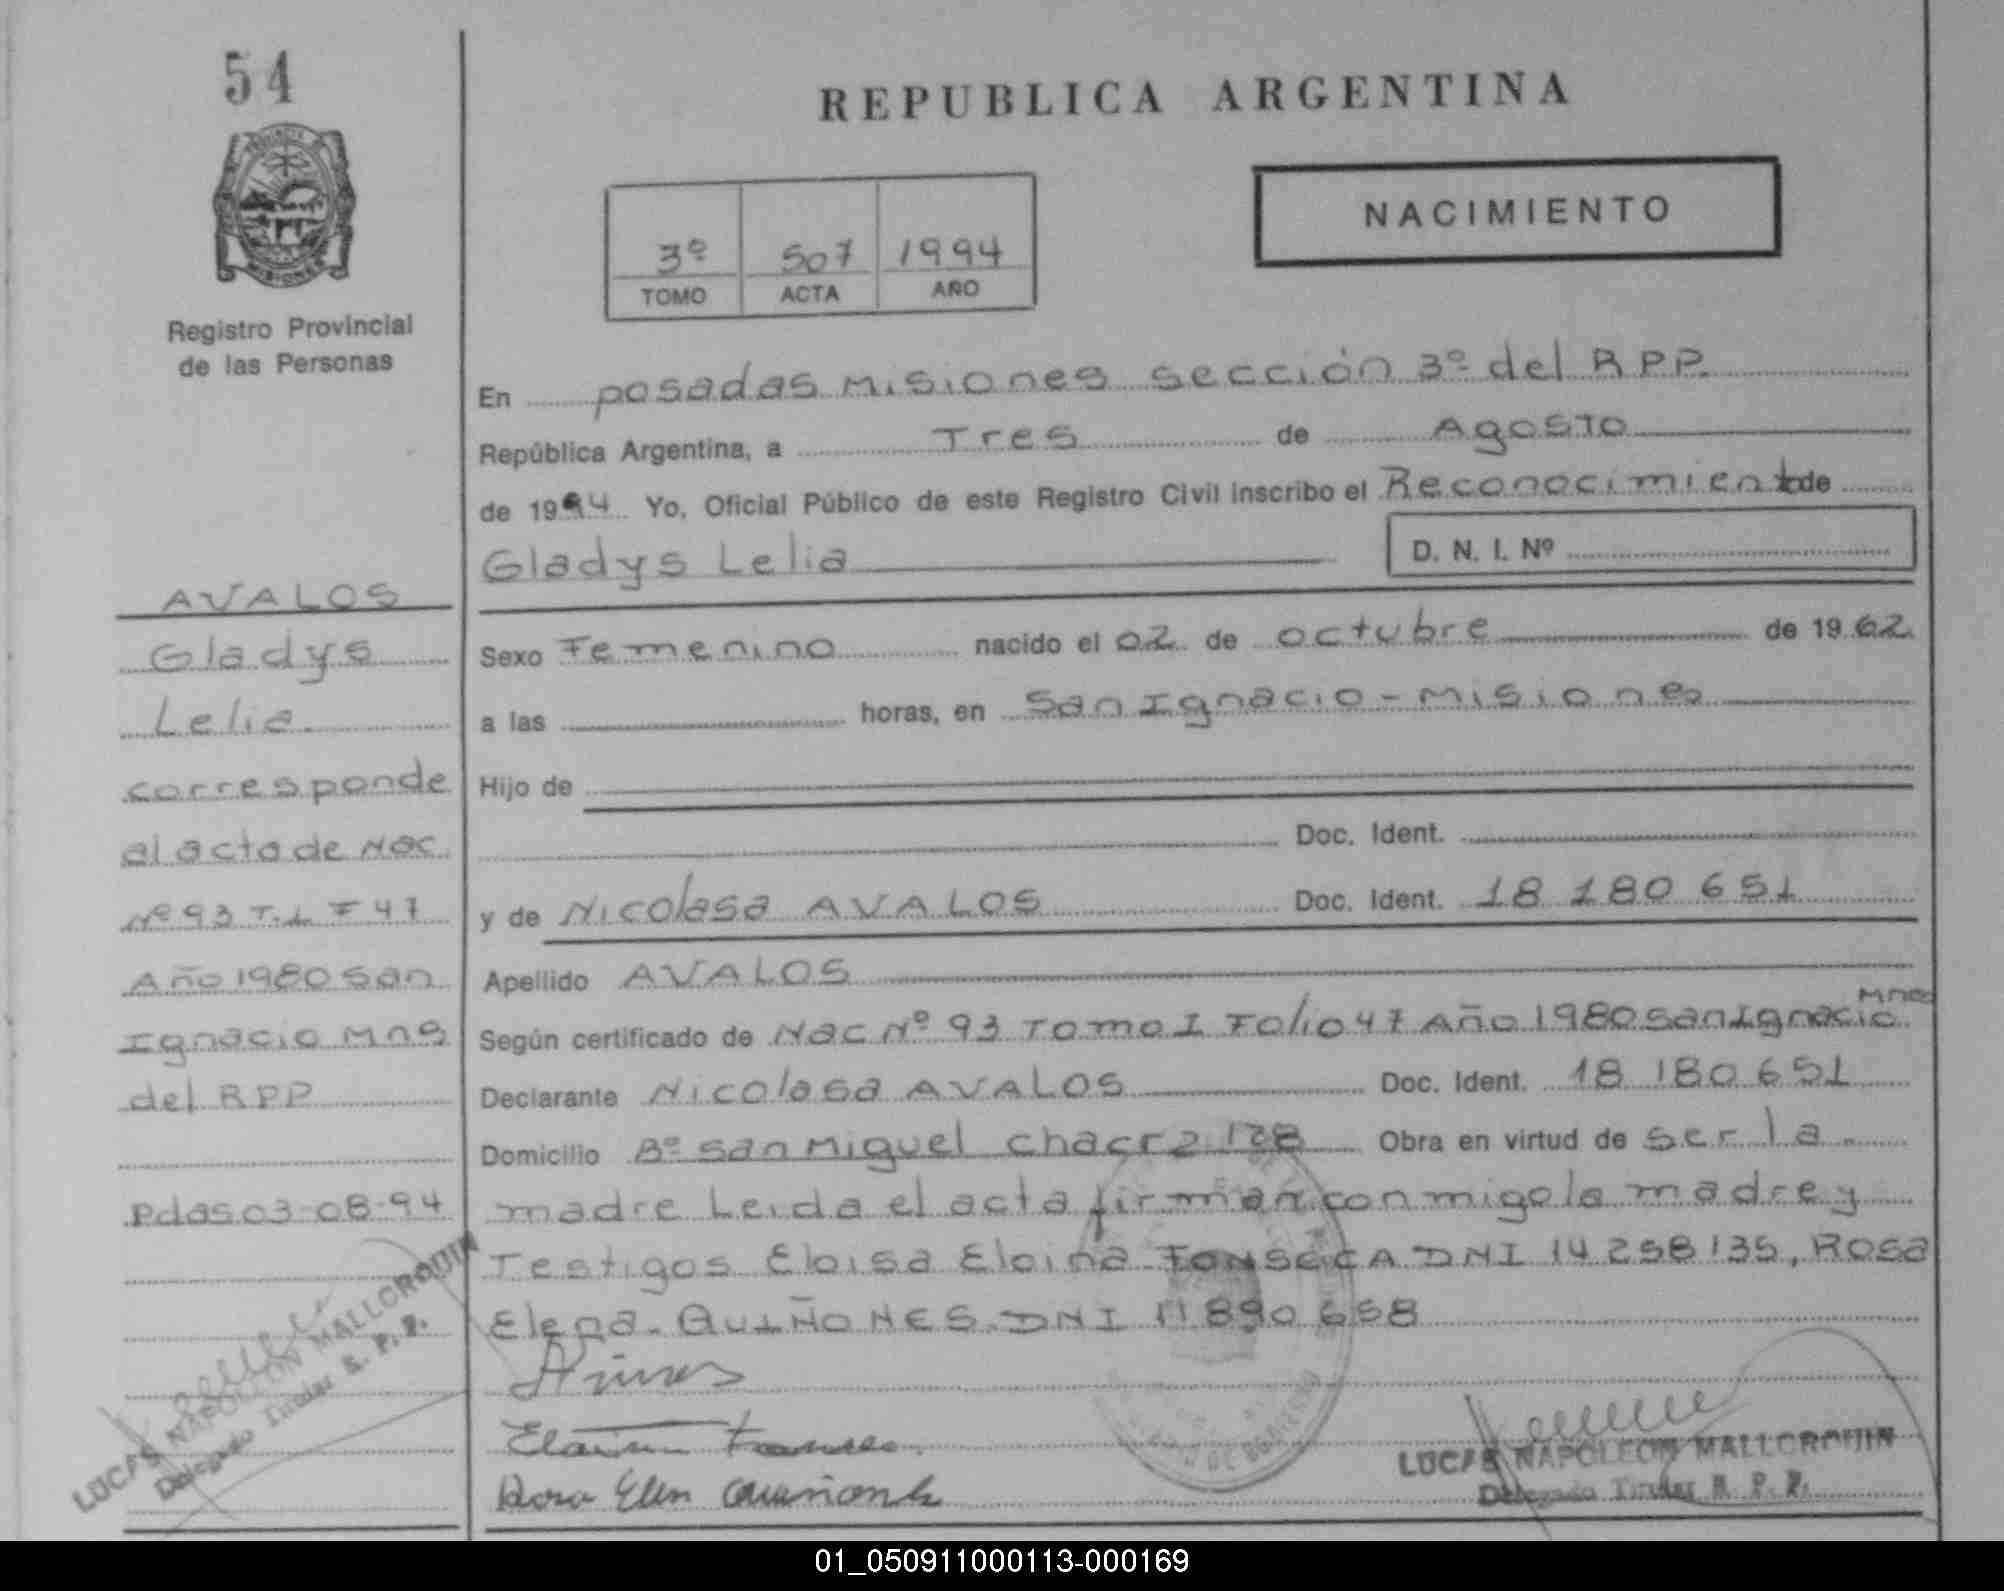 54
REPUBLICA ARGENTINA
NACIMIENTO
MISIONES
3º 507 1994
TOMO ACTA AÑO
Registro Provincial
de las Personas
En posadas Misiones sección 3º del R P P.
República Argentina, a Tres de Agosto
de 1994 Yo, Oficial Público de este Registro Civil inscribo el Reconocimiento de
Gladys Lelia D. N. I. Nº
Sexo Femenino nacido el 02 de octubre de 19 62
a las horas, en San Ignacio - Misiones
Hijo de
Doc. Ident.
y de Nicolasa AVALOS Doc. Ident. 18 180 651
Apellido AVALOS
Según certificado de Nac Nº 93 Tomo I Folio 47 Año 1980 San Ignacio Mnes
Declarante Nicolasa AVALOS Doc. Ident. 18 180 651
Domicilio Bº San Miguel chacra 128 Obra en virtud de ser la
madre Leida el acta firman conmigo la madre y
Testigos Eloisa Eloina FONSECA DNI 14 258 135, Rosa
Elena QUIÑONES DNI 11 890 658
LUCAS NAPOLEON MALLORQUIN
Delegado Titular R. P. P.
AVALOS
Gladys
Lelia
corresponde
al acta de Nac
Nº 93 T. I F 47
Año 1980 San
Ignacio Mns
del RPP
Pdas 03-08-94
LUCAS NAPOLEON MALLORQUIN
Delegado Titular R. P. P.
01_050911000113-000169